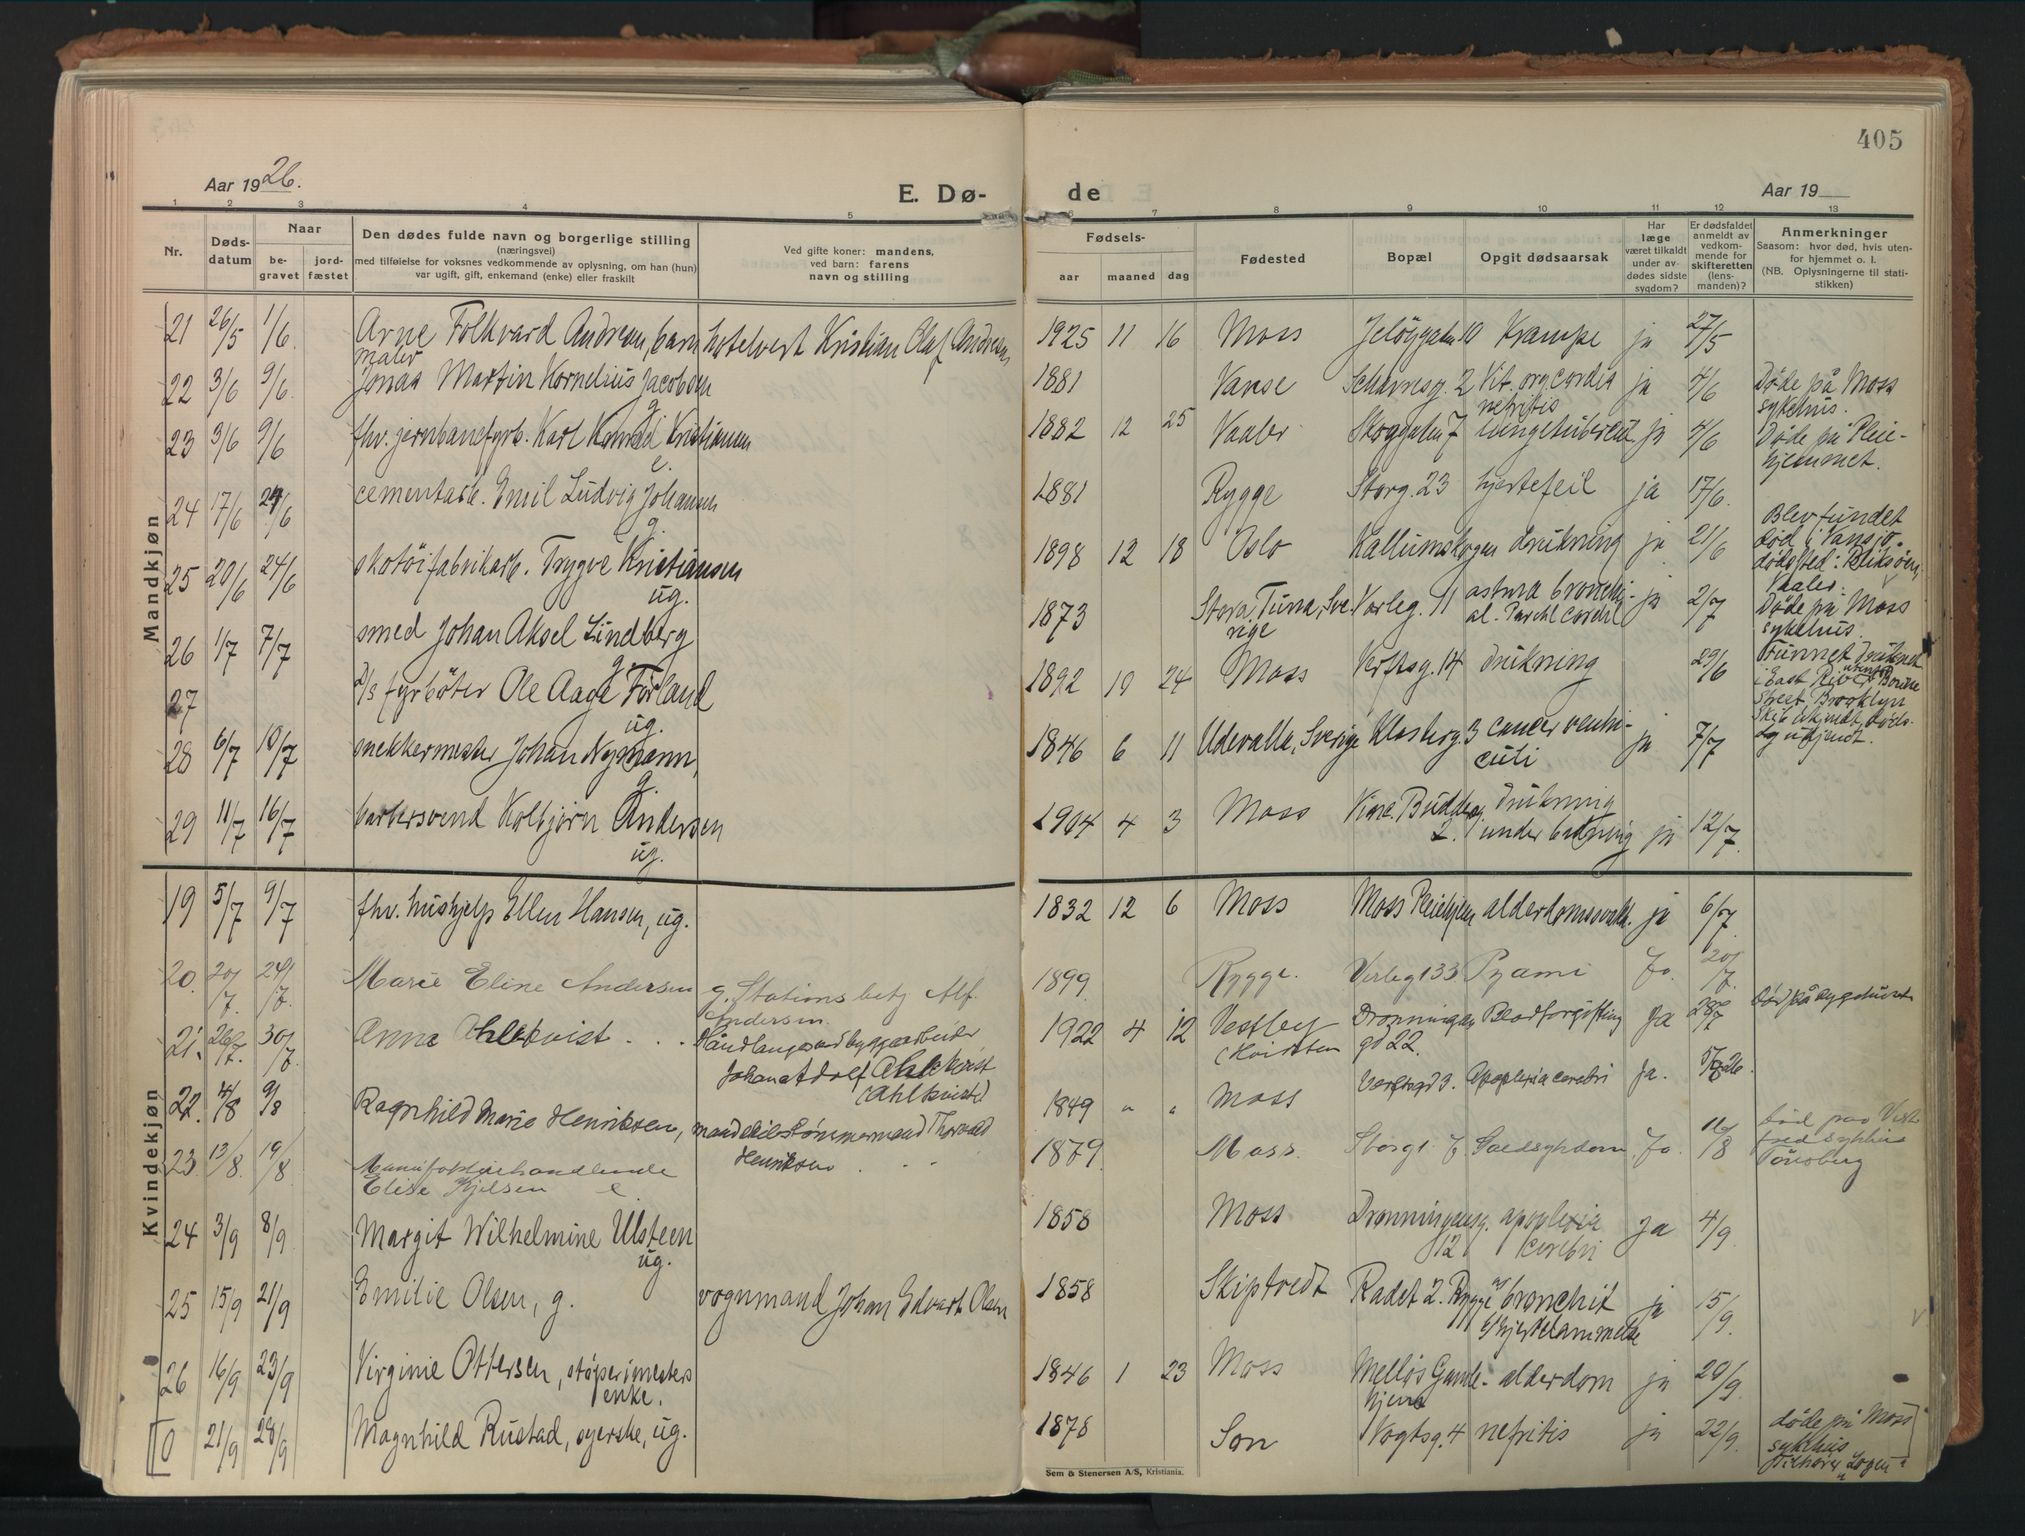 405
Aar 1926.
E. Dø-
de
Aar 19
1 2 3 4 5
6 7 8 9 10 11 12 13
Nr.
Døds-
datum
Naar
be-
gravet
jord-
fæstet
Den dødes fulde navn og borgerlige stilling
(næringsvei)
med tilføielse for voksnes vedkommende av oplysning, om han (hun)
var ugift, gift, enkemand (enke) eller fraskilt
Ved gifte koner: mandens,
ved barn: farens
navn og stilling
Fødsels-
aar maaned dag
Fødested
Bopæl
Opgit dødsaarsak
Har
læge
været tilkaldt
under av-
dødes sidste
sygdom?
Er dødsfaldet
anmeldt av
vedkom-
mende for
skifteretten
(lens-
manden)?
Anmerkninger
Saasom: hvor død, hvis uten-
for hjemmet o. l.
(NB. Oplysningerne til stati-
stikken)
Mandkjøn
21 26/5 1/6 Arne Folkvard Andresen, barn hotelvert Kristian Olaf Andresen 1925 11 16 Moss Jeløygaten 10 Krampe ja 27/5
maler
22 3/6 9/6 Jonas Martin Kornelius Jacobsen 1881 Vanse 2 Vit. org. cordis ja 4/6 Døde på Moss
g. nefritis sykehus.
23 3/6 9/6 fhv. jernbanefyrb. Karl Konrad Kristiansen 1882 12 25 Vaaler Skoggaten 7 lungetubercul. ja 4/6 Døde på Pleie-
e. hjemmet.
24 17/6 24/6 cementarb. Emil Ludvig Johansen 1881 Rygge Storg. 23 hjertefeil ja 17/6.
g.
25 20/6 24/6 skotøifabrikarb. Trygve Kristiansen 1898 12 18 Oslo Kallumskogen drukning ja 21/6 Blev fundet
død i Vansjø.
dødssted:
ug. Vaaler.
26 1/7 7/7 smed Johan Aksel Lindberg 1873 Stora Tuna, Sve- Varleg. 11 astma bronchi- ja 2/7 Døde på Moss
g. rige al. cordis sykehus.
27 D/s fyrbøter Ole Aage Førland 1892 10 24 Moss Verftsg. 14 drukning 29/6 Funnet druknet
i East River utenfor
ug. Street, Brooklyn
28 6/7 10/7 snekkermester Johan Nymann, 1846 6 11 Udevalla, Sverige Klosterg. 3 cancer ventri- ja 7/7
g. culi
29 11/7 16/7 barbersvend Kolbjørn Andersen 1904 4 3 Moss Vinc. Buddesg. drukning ja 12/7.
ug. 2. under badning
Kvindekjøn
19 5/7 9/7 fhv. hushjelp Ellen Hansen, ug. 1832 12 6 Moss Moss Pleiehjem alderdomssvakh. ja 6/7.
20. 20/7. 24/7. Marie Eline Andersen g. Stationsbetj. Alf. 1899 Rygge. Varleg 133 Pyæmi Ja. 20/7.
Andersen.
21. 26/7. 30/7. Anna Ahlkvist . . . Håndlanger ved byggearbeider 1922 4 12 Vestby Dronningens Blodforgiftning Ja 28/7 Død på sygehuset
Johan Adolf Ahlkvist (Hvidsten gd 22.
(Ahlkvist)
22. 4/8 9/8 Ragnhild Marie Henriksen, Tømmermand Thorvald 1849 " " Moss Værftsgd 3. Apoplexia cerebri Ja.
Henriksen
23 13/8. 19/8. Manufakturhandlende 1879 Moss. Storgt. 7 Ja. 16/8 Død paa Vest
Elise Kjelsen e fold sykehus
Tönsberg
24 3/9 8/9 Margit Wilhelmine Ulsteen 1858 Moss Dronningensg. apoplexia Ja 4/9.
ug. 12 cerebri
25 15/9 21/9 Emilie Olsen, g. vognmand Johan Edvart Olsen 1858 Skiptvedt Radet 2. Rygge a) bronchit ja 15/9.
b) hjertelammelse
26 16/9 23/9 Virginie Ottersen, støperimesters 1846 1 23 Moss Melløs Gamle- alderdom ja 20/9.
enke. hjem
0 21/9 28/9 Magnhild Rustad, syerske, ug. 1878 Son Vogtsg. 4 nefritis ja 22/9. døde på Moss
sykehus
tilhører
Sem & Stenersen A/S, Kristiania.